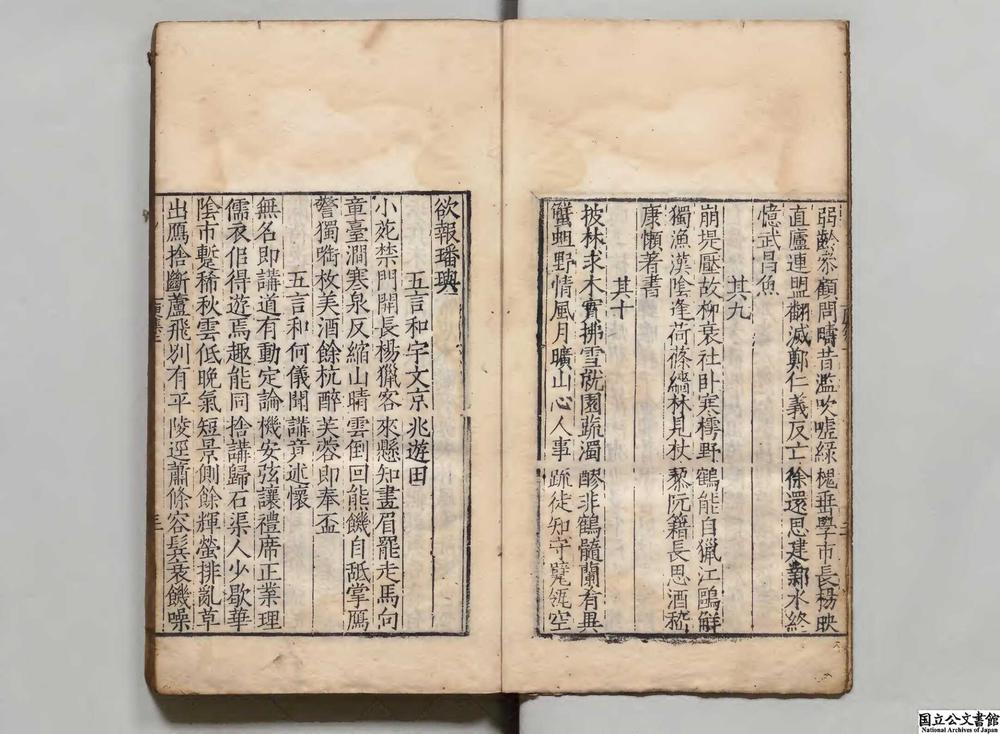 弱齡參顧問疇昔濫吹噓綠槐垂學市長楊映
直廬連盟翻滅鄭仁義反亡徐還思建鄴水終
憶武昌魚
其九
崩堤壓故柳衰社臥寒樗野鶴能自獵江鷗解
獨漁漢陰逢荷蓧緇林見杖藜阮籍長思酒嵇
康懶著書
其十
披林求木實拂雪就園蔬濁醪非鶴髓蘭肴異
蟹蛆野情風月曠山心人事疏徒知守甓瓴空
欲報璠璵
五言和宇文京兆遊田
小苑禁門開長楊獵客來懸知畫眉罷走馬向
章臺澗寒泉反縮山晴雲倒回熊饑自舐掌鴈
驚獨銜枚美酒餘杭醉芙蓉即奉盃
五言和何儀聞講竟述懷
無名即講道有動定論機安弦讓禮席正業理
儒衣伹得遊焉趣能同捨講歸石渠人少歇華
陰市暫稀秋雲低晚氣短景側餘輝螢排亂草
出鴈捨斷蘆飛別有平陵逕蕭條容鬂衰饑噪
国立公文書館
National Archives of Japan